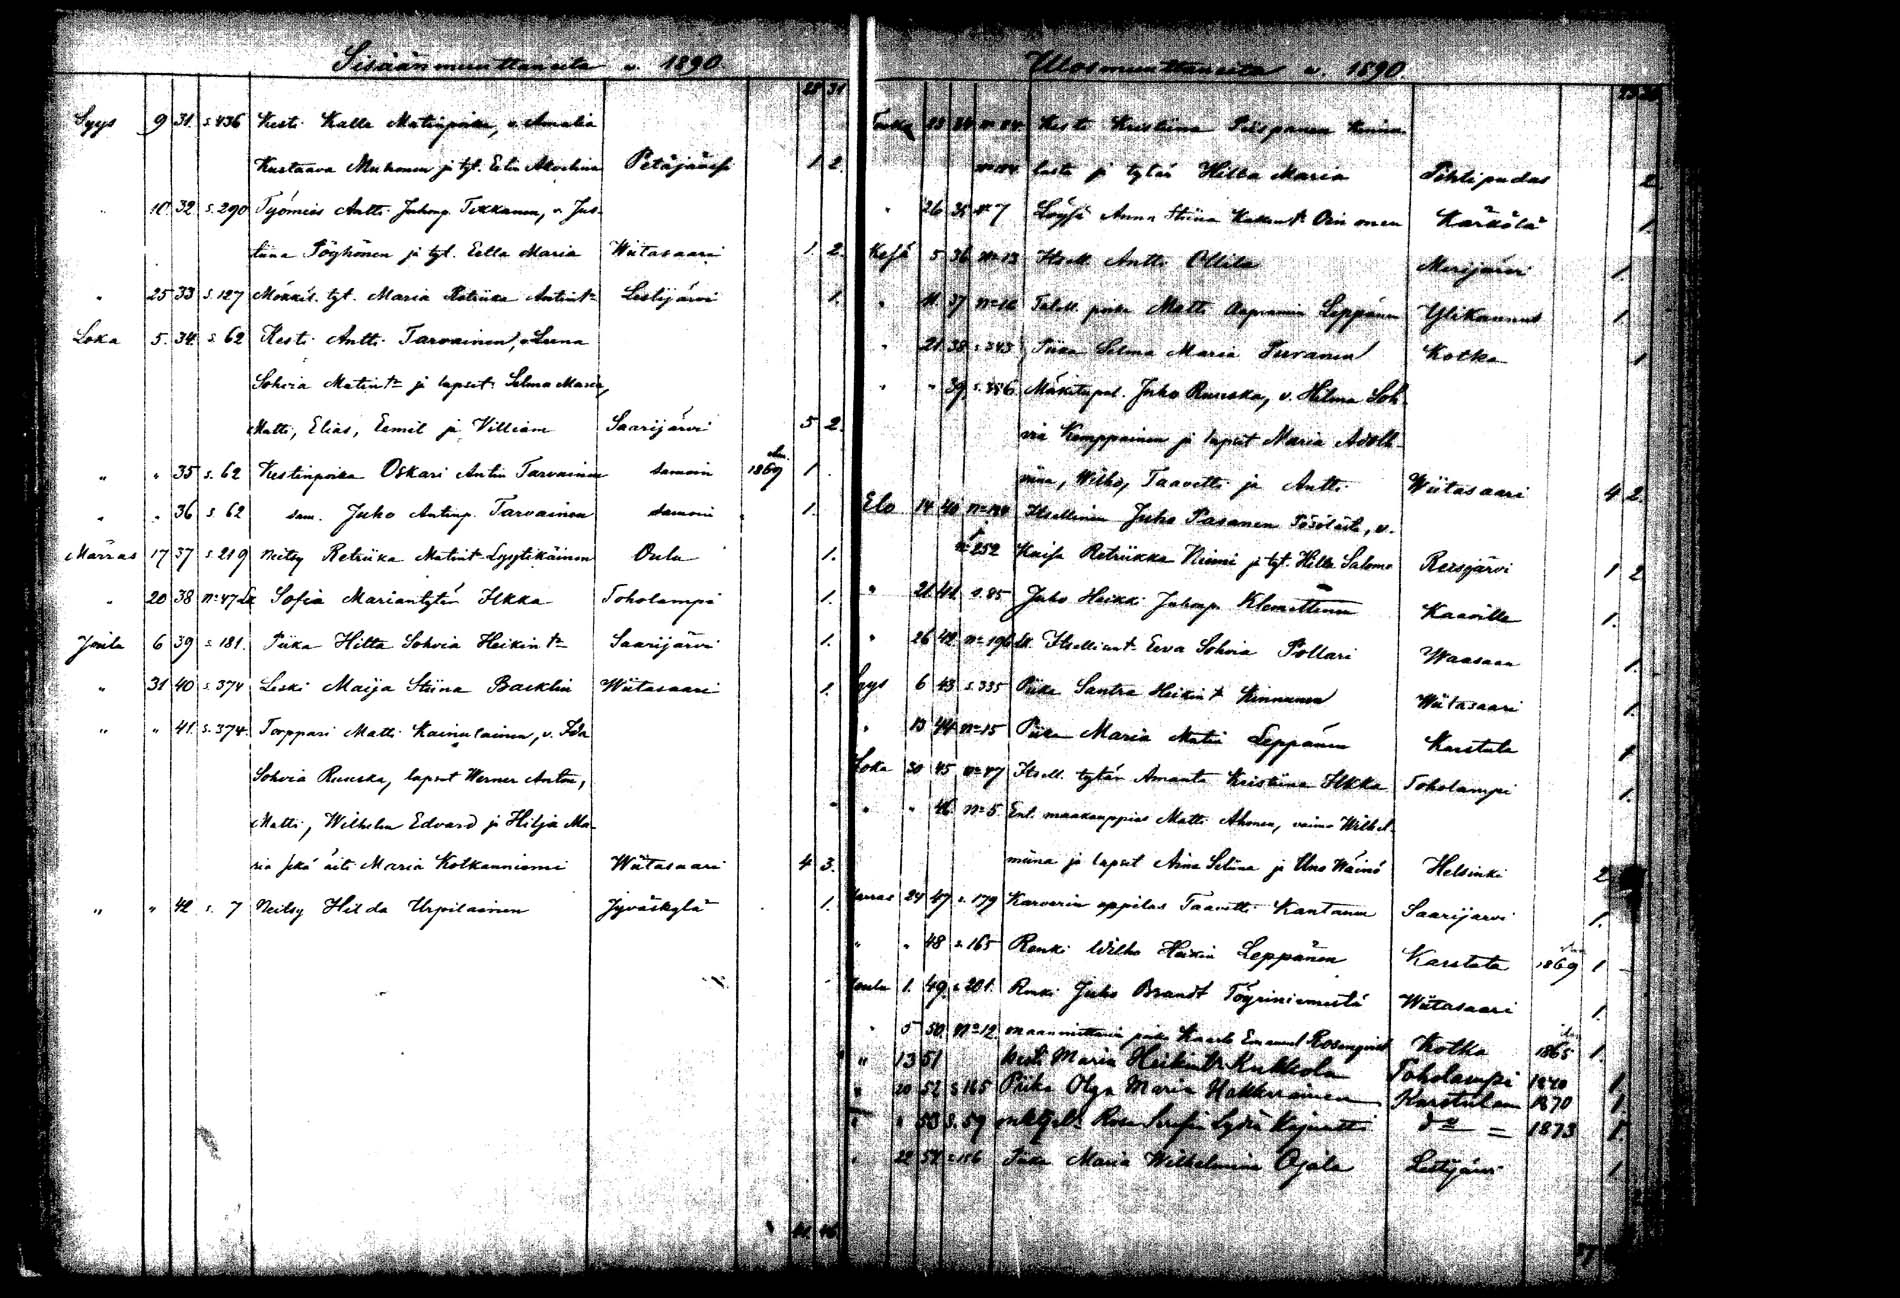 Sisäänmuuttaneita v. 1890
28 31
Syys 9 31. s. 436 Kesti Kalle Matinpoika, v. Amalia
Kustaava Muhonen ja tyt. Petäjävesi 1. 2.
" 10 32. s. 290 Työmies Antti Juhonp. Tikkanen, v. Jus-
tiina Pöyhönen ja tyt. Eella Maria Wiitasaari 1. 2.
" 25 33 s. 127 Mökkil. tyt. Maria Retriika Antint. Lestijärvi 1.
Loka 5. 34. s. 62 Kesti Antti Tarvainen, v. Leena
Sohvia Matint. ja lapset: Selma Maria,
Matti, Elias, Eemil ja Villiam Saarijärvi 5 2.
" " 35 s. 62 Kestinpoika Oskari Antin Tarvainen samoin 1869 1.
" " 36 s 62 sam. Juho Antinp. Tarvainen samoin 1.
Marras 17 37 s. 219 Neitsy Retriika Matint. Lyytikäinen Oulu 1.
" 20 38 No 47 Sofia Mariantytär Ilkka Toholampi 1.
Joulu 6 39 s. 181. Piika Hilta Sohvia Heikint. Saarijärvi 1.
" 31 40 s. 374 Leski Maija Stiina Backlin Wiitasaari 1.
" " 41. s. 374. Torppari Matti Kainulainen, v. Ida
Sohvia Ruuska, lapset Werner Anton,
Matti, Wilhelm Edvard ja Hilja Ma-
ria sekä äiti Maria Kotkanniemi Wiitasaari 4 3.
" " 42 s. 7 Neitsy Hilda Urpilainen Jyväskylä 1.
41 46
Ulosmuuttaneita v. 1890.
Kesti Kristiina Piispanen
lasta ja tytär Hilta Maria Pihtipudas 2.
" 26 35 No 7 Löysä Anna Stiina Kärkölä 1.
Kesä 5 36 No 13 Itsell. Antti Ollila Merijärvi 1.
" 11 37 Taloll. poika Matti Leppänen Ylikannus 1.
" 21. 38 s. 343 Piika Selma Maria Puranen Kotka 1
" " 39 s. 386 Mäkitupal. Juho Ruuska, v. Hilma Soh-
via Kemppainen ja lapset Maria
miina, Wilho, Taavetti ja Antti Wiitasaari 4 2.
Elo 14 40 Itsellinen Juho Pasanen, v.
No 252 Kaisa Retriikka Niemi ja tyt. Hilta Salome Reisjärvi 1 2
" 21. 41. s. 85 Juho Heikki Juhonp. Klemettinen Kaavilla 1.
" 26 42. No 196 Itsellisent. Eeva Sohvia Pollari Waasaan 1.
Syys 6 43 s. 335 Piika Santra Heikint. Kinnunen Wiitasaari 1.
" 13 44 No 15 Piika Maria Matin Leppänen Karstula 1
Loka 30 45 No 47 Itsell. tytär Amanta Kristiina Ilkka Toholampi 1.
" " 46 No 5. Ent. maakauppias Matti Ahonen, vaimo Wilhel-
miina ja lapset Aina Seliina ja Uno Wäinö Helsinki 2
Marras 24 47 s. 179 Karvarin oppilas Taavetti Kantanen Saarijärvi 1.
" " 48 s. 165 Renki Wilho Heikin Leppänen Karstula 1869 1
Joulu 1. 49. s. 201. Renki Juho Brandt Wiitasaari 1.
" 5 50. No 12. maanmittarin poika Kaarlo Emanuel Rosenqvist Kotka 1865 1.
" 13 51 Maria Heikint. Kukkola Toholampi 1840 1.
" 20 52 s. 165 Piika Olga Maria Hakkarainen Karstulaan 1870 1.
" " 53 s. 59 Rosa Lydia do 1873 1.
" 22 54 s. 186 Piika Maria Wilhelmiina Ojala Lestijärvi 1.